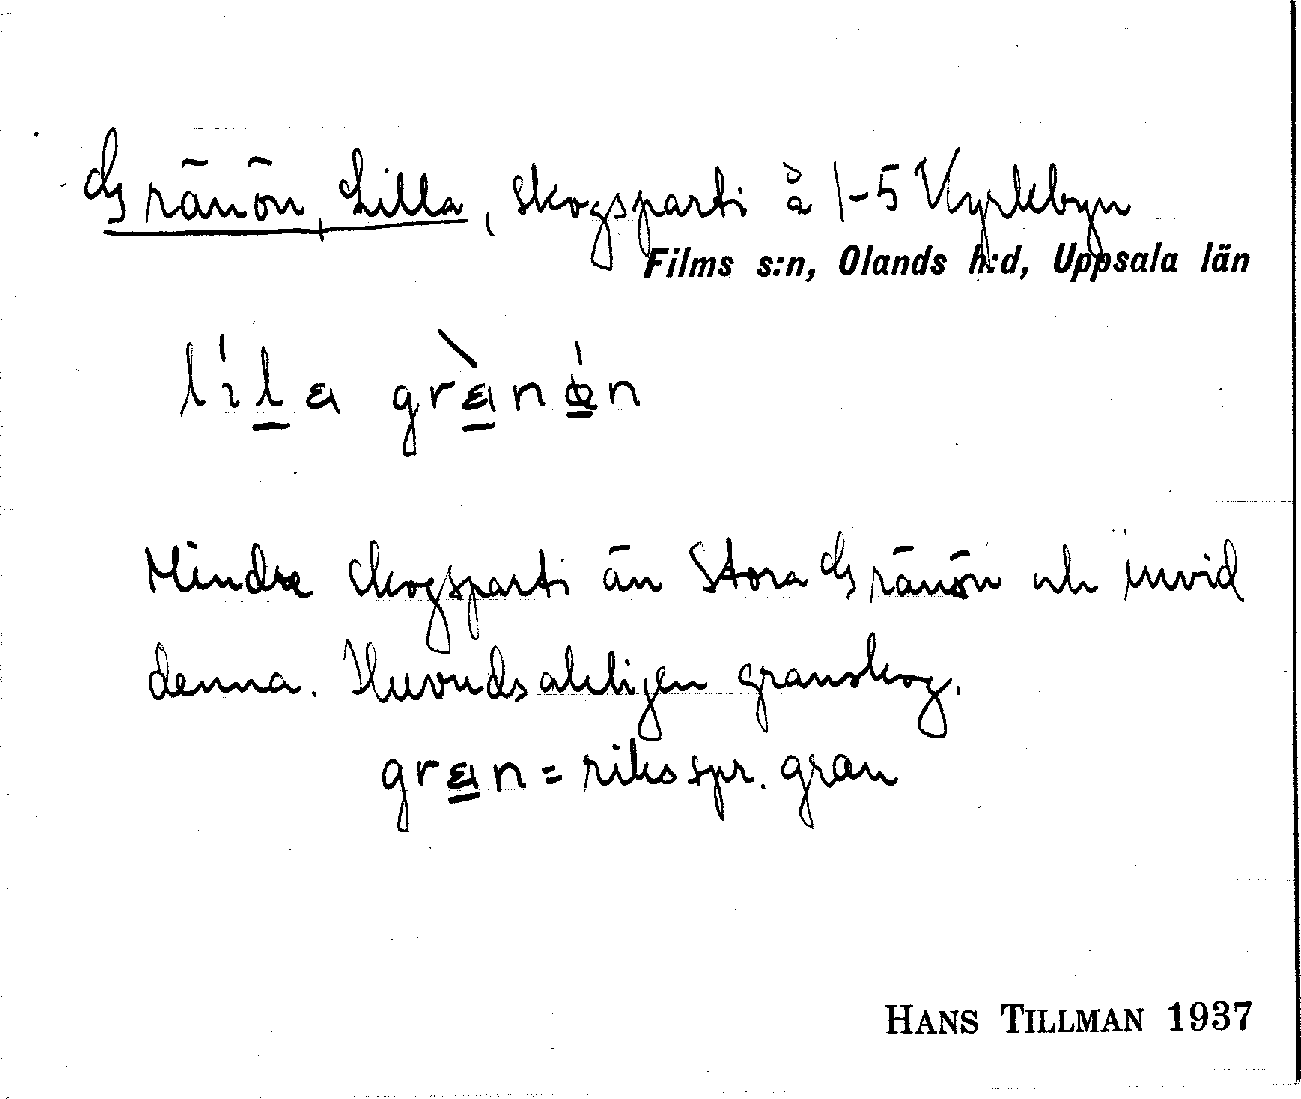 Gränön, Lilla, skogsparti å 1-5 Kyrkbyn
Films s:n, Olands h:d, Uppsala län
Mindre skogsparti än Stora Gränön och invid
denna. Huvudsakligen granskog.
= riksspr. gran
HANS TILLMAN 1937